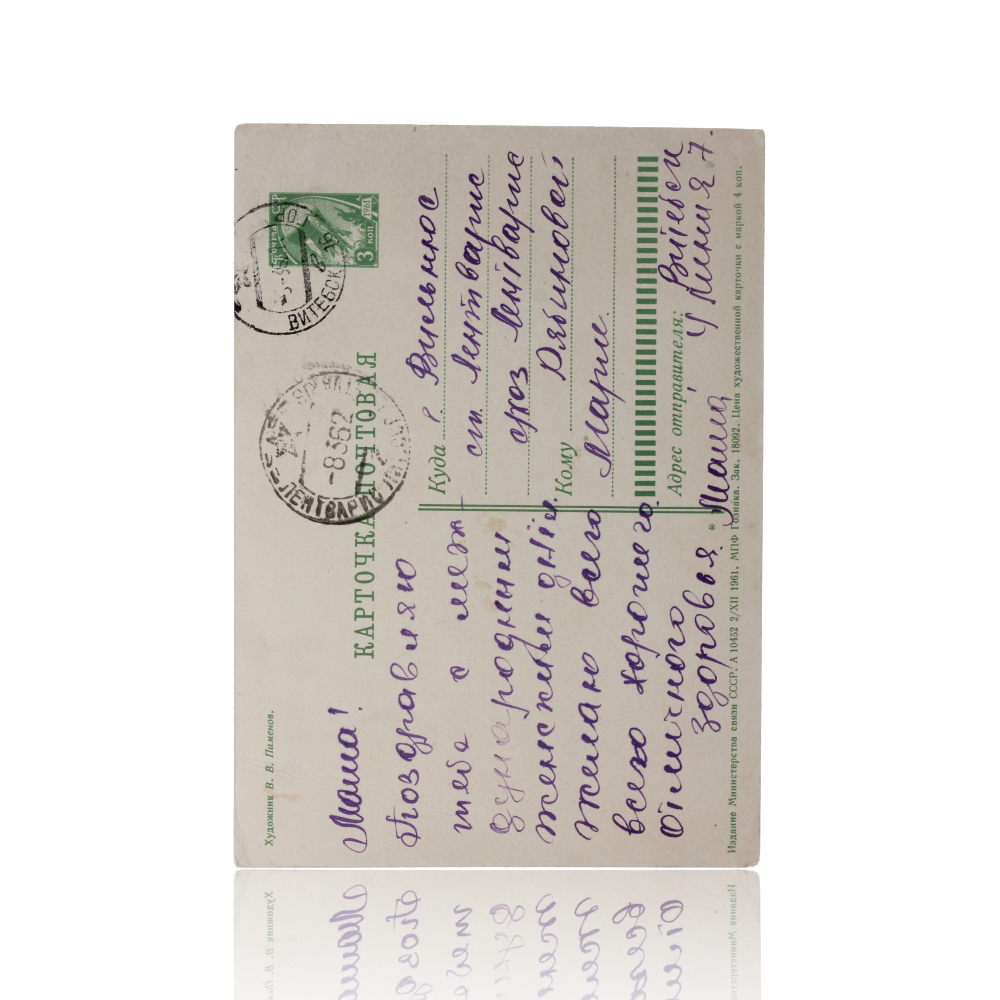 Художник В. В. Пименов.
ПОЧТА СССР
1961
3 КОП.
ВИТЕБСК
ЛЕНТВАРИС
-8 3 62
КАРТОЧКА ПОЧТОВАЯ
Маша!
Поздравляю
тебя с меж-
дународным
женским днём.
желаю всего
всего хорошего.
отличного
здоровья. Маша
Куда г. Вильнюс
ст. Лентварис
схоз Лентварис
Кому Рябиновой
Марии.
Адрес отправителя: Витебск
Линия 7.
Издание Министерства связи СССР. А 10452 2/XII 1961. МПФ Гознака. Зак. 18092. Цена художественной карточки с маркой 4 коп.